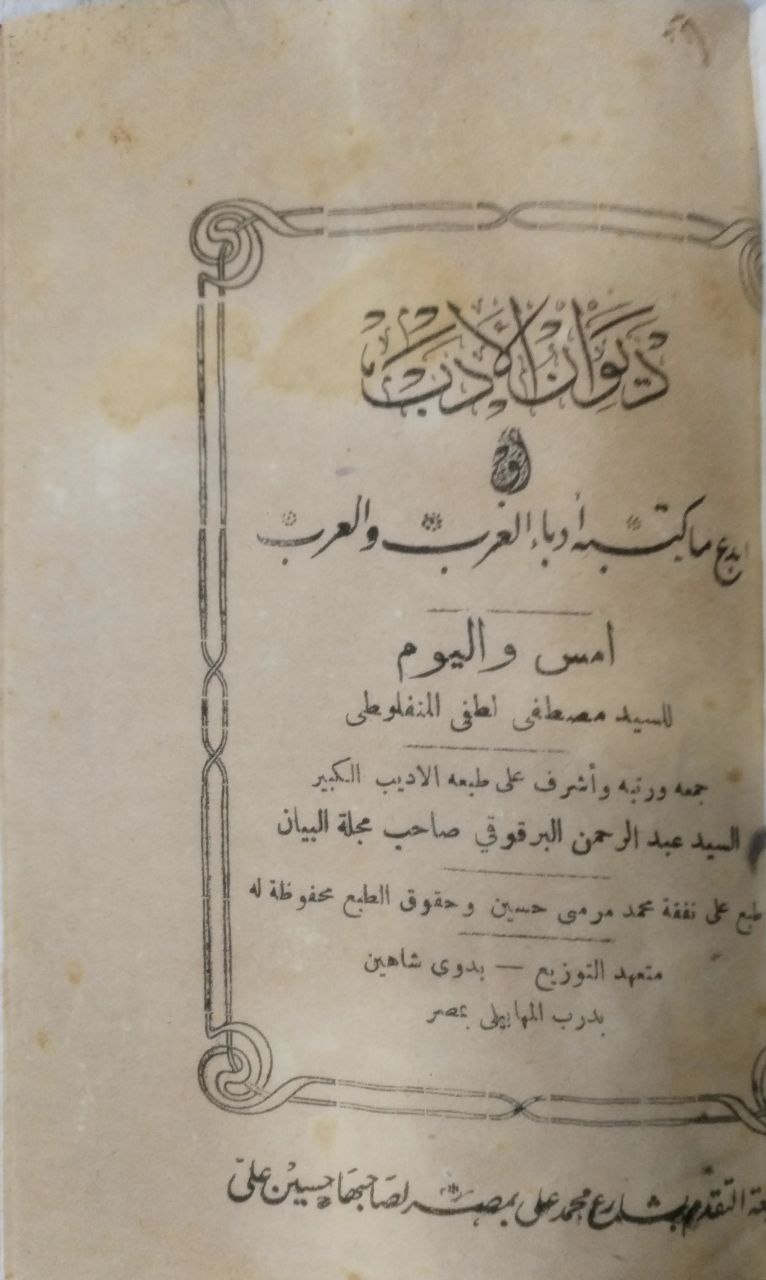 ديوان الأدب
و
ابدع ما كتبه أدباء الغرب والعرب
امس واليوم
للسيد مصطفى لطفى المنفلوطى
جمعه ورتبه وأشرف على طبعه الاديب الكبير
السيد عبد الرحمن البرقوقي صاحب مجلة البيان
طبع على نفقة محمد مرسى حسين وحقوق الطبع محفوظة له
متعهد التوزيع — بدوى شاهين
بدرب المهابيلى بمصر
التقدم بشارع محمد على بمصر لصاحبها حسين على